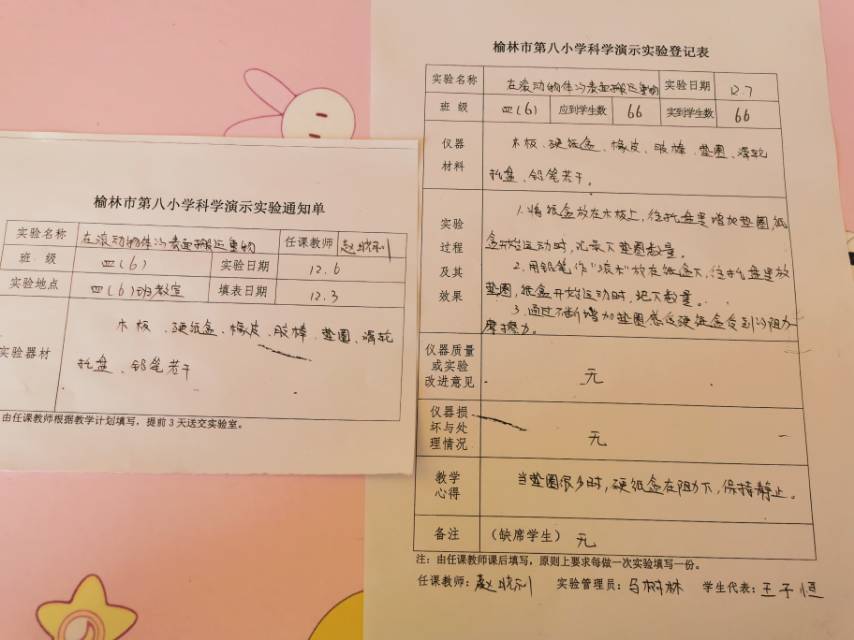 榆林市第八小学科学演示实验通知单
实验名称 在滚动物体的表面搬运重物 任课教师
班 级 四(6) 实验日期 12.6
实验地点 四(6)班教室 填表日期 12.3
实验器材
木板、硬纸盒、橡皮、胶棒、垫圈、滑轮
托盘、铅笔若干
由任课教师根据教学计划填写，提前3天送交实验室。
榆林市第八小学科学演示实验登记表
实验名称 在滚动物体的表面搬运重物 实验日期 12.7
班 级 四(6) 应到学生数 66 实到学生数 66
仪器
材料
木板、硬纸盒、橡皮、胶棒、垫圈、滑轮
托盘、铅笔若干。
实验
过程
及其
效果
1.将纸盒放在木板上，往托盘里增加垫圈，纸
盒开始运动时，记录下垫圈数量。
2.用铅笔作“滚木”放在纸盒下，往托盘里放
垫圈，纸盒开始运动时，记下数量。
3.通过不断增加垫圈感受硬纸盒受到的阻力-
摩擦力。
仪器质量
或实验
改进意见
无
仪器损
坏与处
理情况
无
教学
心得
当垫圈很少时，硬纸盒在阻力下，保持静止。
备注 (缺席学生) 无
注：由任课教师课后填写，原则上要求每做一次实验填写一份。
任课教师： 实验管理员：马树林 学生代表：王子恒